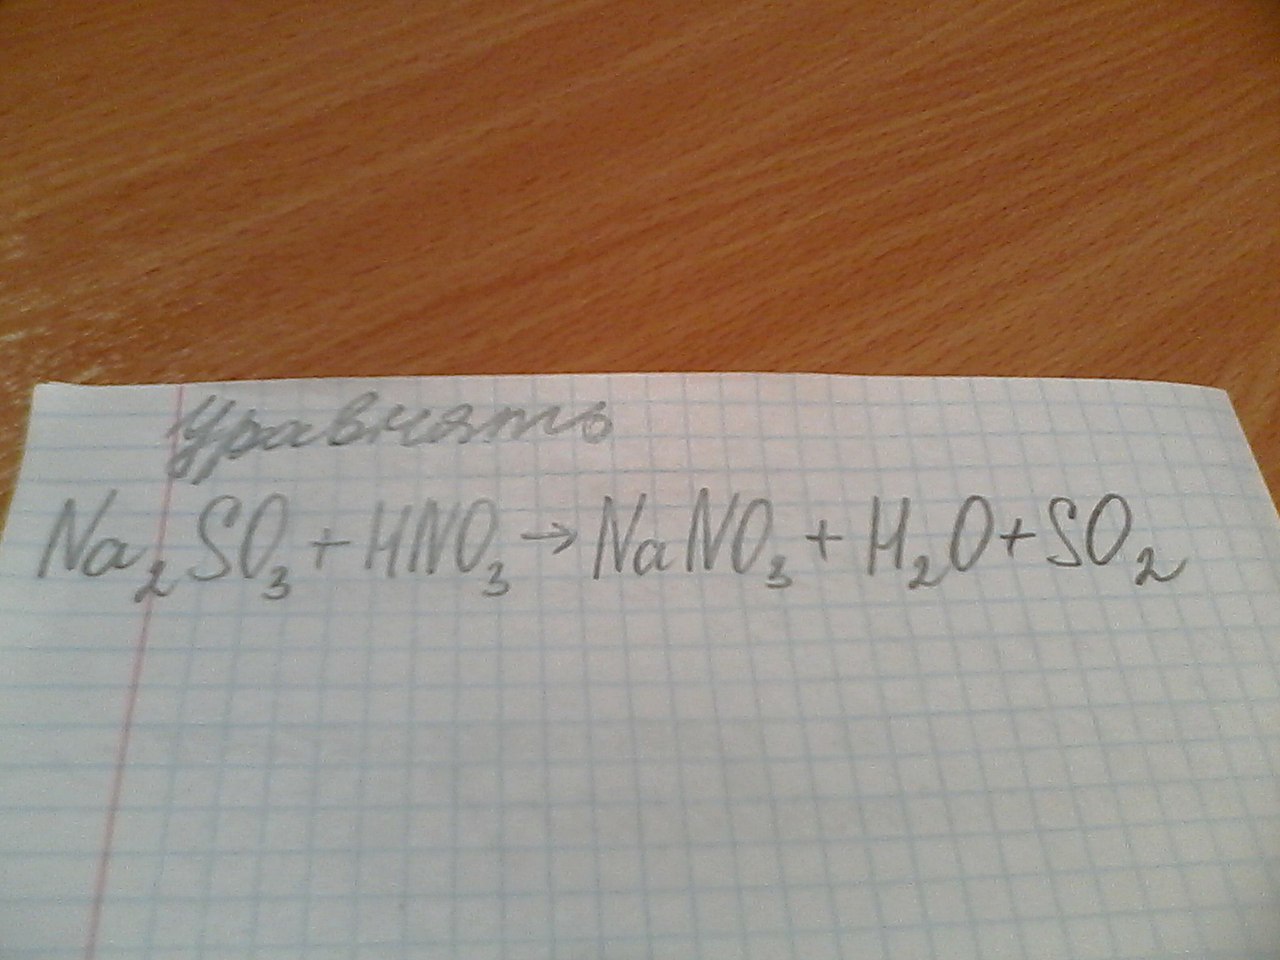 Уравнять
Na₂SO₃ + HNO₃ → NaNO₃ + H₂O + SO₂